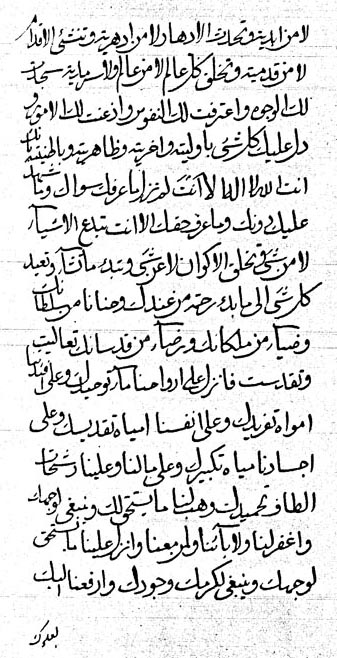 لا من ابدية وتحدث الادهار لا من ادهرية وتنشئ الاقدام
لا من قدمية وتخلق كل عالم لا من عالم ولا سرمدية سجدت
لك الوجوه واعترفت لك النفوس واذعنت لك الامور و
دل عليك كل شئ باوليته واخريته وظاهريته وباطنيته
انت الله لا اله الا انت لم تزل ما عرفك سواك وما
عليك دونك وما عرف حقك الا انت تبدع الاشياء
لا من شئ وتخلق الاكوان لا عن شئ وتبدء ما تشاء وتعيد
كل شئ الى ما بدء رحمة من عندك وحنانا من سلطانك
وضياء من ملكانك ورضاء من قدسانك تعاليت
وتقدست فانزل على ارواحنا ماء توحيدك وعلى افئدتنا
امواه تفريدك وعلى انفسنا امياه تقديسك وعلى
اجسادنا مياه تكبيرك وعلى مالنا وعلينا رشحات
الطاف تحميدك وهب لنا ما يستحق لك وينبغي لوجهك
واغفر لنا ولابائنا ولمن معنا وانزل علينا ما يستحق
لوجهك وينبغي لكرمك وجودك وارفعنا اليك
بعلوك